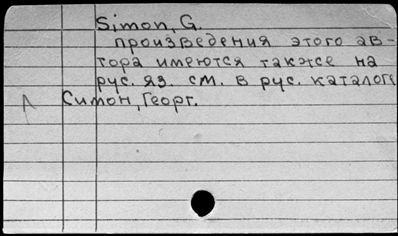 Simon, G.
произведения этого ав-
тора имеются также на
рус. яз. см. в рус. каталоге
Симон, Георг.